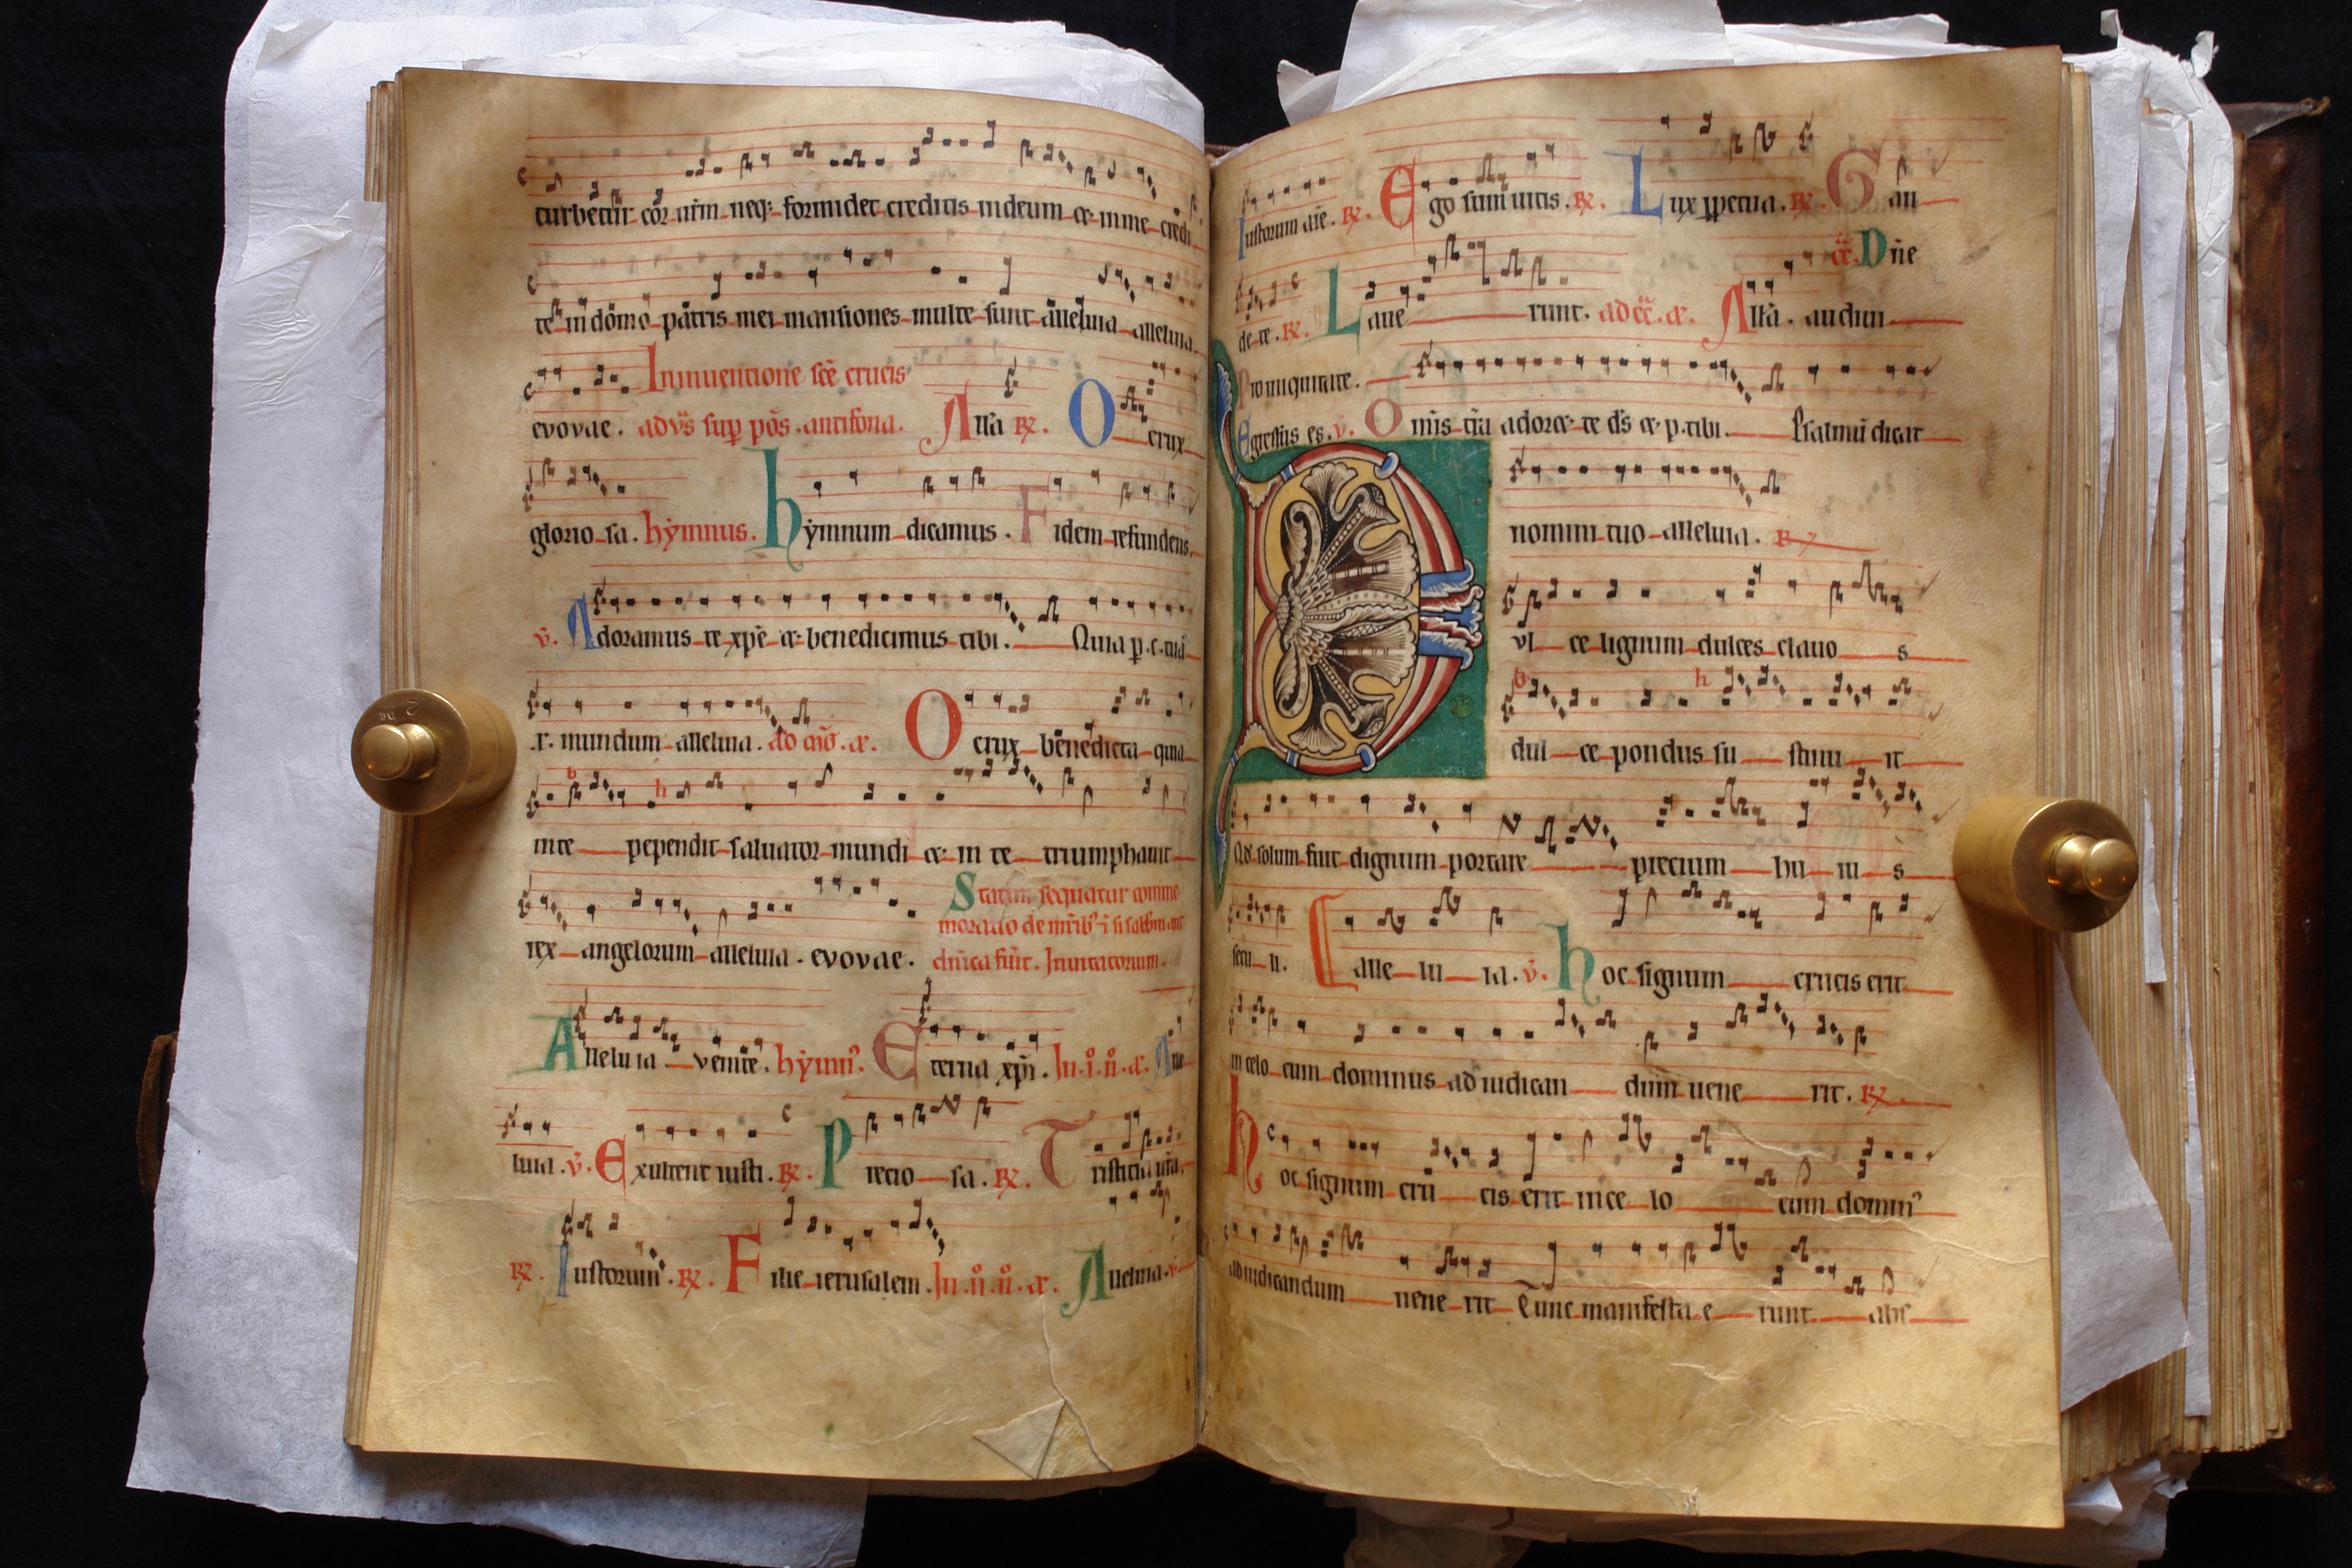 turbetur cor ur̄m neq; formidet creditis in deum et in me credi
te in domo patris mei mansiones multe sunt alleluia alleluia.
In inuentione sc̄e crucis
evovae. ad vs̄ sup pōs. antifona. All'a R. O crux
glorio sa. hẏmnus. hẏmnum dicamus. Fidem refundens.
v̄. Adoramus te xp̄e et benedicimus tibi. Quia p̄.c.tuā
r. mundum alleluia. ad m̄g. a. O crux benedicta quia
in te pependit saluator mundi et in te triumphauit
rex angelorum alleluia. evovae.
Statim sequatur comme
moratio de
dn̄ica fūit. Inuitatorium.
Alleluia venite. hẏmn⁹. Eterna xp̄i. In.i.n̊.a. Alle
luia. v̄. Exultent iusti. R. Precio sa. R. Tristicia ur̄a.
R. Iustorum. R. Filie ierusalem. In.ii.n̊.a. Alleluia.
Iustorum aīe. R. Ego sum uitis. R. Lux ꝑpetua. R. Gau
Dn̄e
de te. R. Laue runt. ad cā. a. All'a. audiui
Pro iniquitate.
Egressus es. v̄. Omīs tr̄a adoret te ds̄ et p. tibi. Psalmū dicat
nomini tuo alleluia. R
Dvl ce lignum dulces clauo s
dul ce pondus su stinu it
Qd̄ solum fuit dignum portare precium hu iu s
secu li. alle lu ia. v̄. hoc signum crucis erit
in celo cum dominus ad iudican dum uene rit. R.
hoc signum cru cis erit in ce lo cum domin⁹
ad iudicandum uene rit Tunc manifesta e runt abs